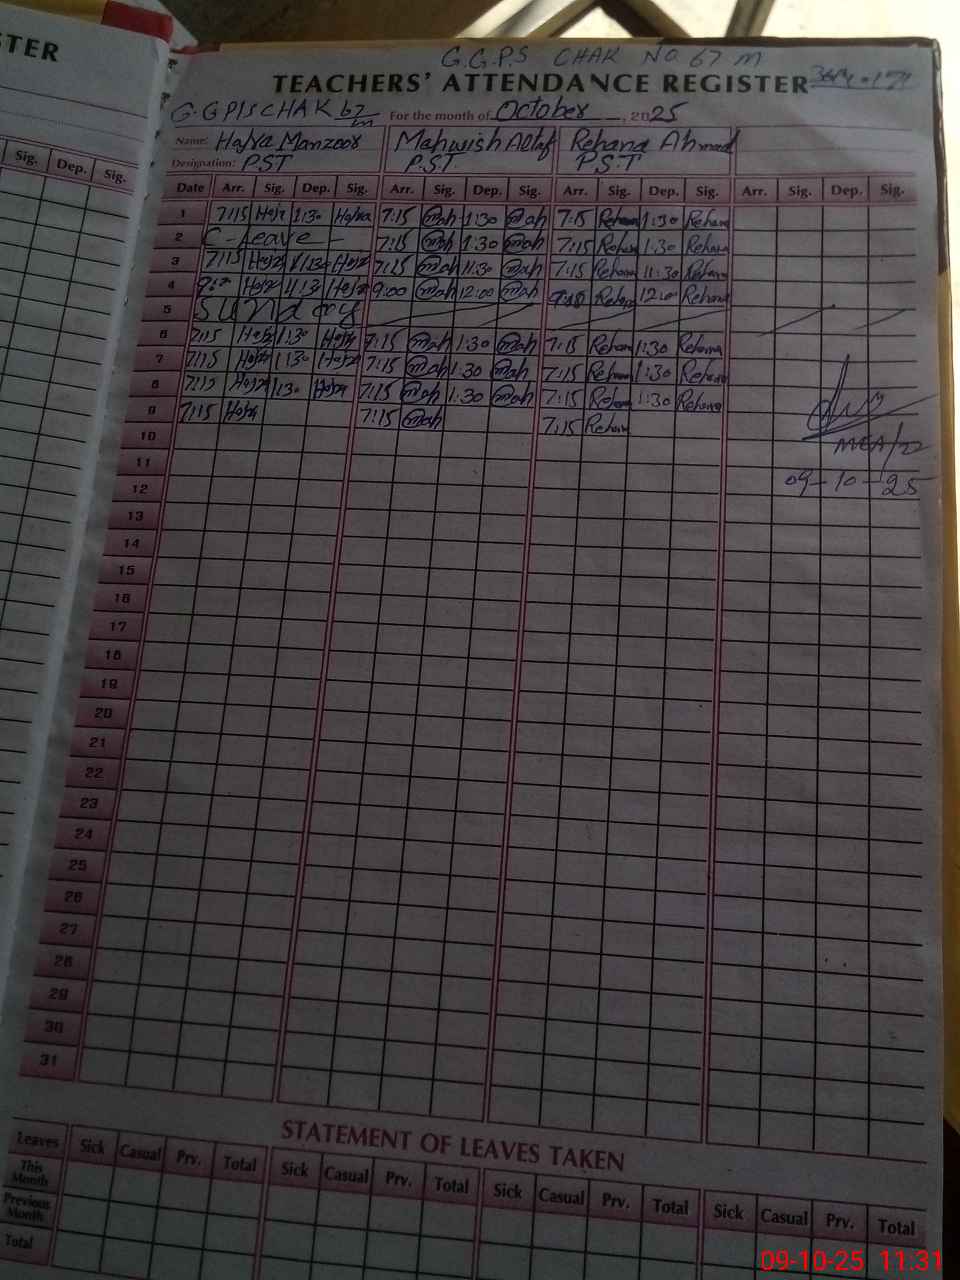 STER
G.G.P.S CHAK No 67 M
TEACHERS' ATTENDANCE REGISTER
G.GPISCHAK 67/m For the month of October, 2025
Name: Hajra Manzoor Mahwish Altaf Rehana Ahmad
Designation: P.S.T P.S.T P.S.T
Sig. Dep. Sig.
Date Arr. Sig. Dep. Sig. Arr. Sig. Dep. Sig. Arr. Sig. Dep. Sig. Arr. Sig. Dep. Sig.
1 7:15 Hajr 1:30 Hajra 7:15 Mah 1:30 Mah 7:15 Rehana 1:30 Rehana
2 C-Leave - 7:15 Mah 1:30 Mah 7:15 Rehana 1:30 Rehana
3 7:15 Hajr 11:30 Hajr 7:15 Mah 11:30 Mah 7:15 Rehana 11:30 Rehana
4 Hajr Hajr 9:00 Mah 12:00 Mah Rehana 12:00 Rehana
5 Sunday
6 7:15 Hajr 1:30 Hajr 7:15 Mah 1:30 Mah 7:15 Rehana 1:30 Rehana
7 7:15 Hajr 1:30 Hajr 7:15 Mah 1:30 Mah 7:15 Rehana 1:30 Rehana
8 7:15 Hajra 1:30 Hajra 7:15 Mah 1:30 Mah 7:15 Rehana 1:30 Rehana
9 7:15 Hajra 7:15 Mah 7:15 Rehana
10
MEA
11
09-10-25
12
13
14
15
16
17
18
19
20
21
22
23
24
25
26
27
28
29
30
31
STATEMENT OF LEAVES TAKEN
Leaves Sick Casual Prv. Total Sick Casual Prv. Total Sick Casual Prv. Total Sick Casual Prv. Total
This Month
Previous Month
Total
09-10-25 11:31